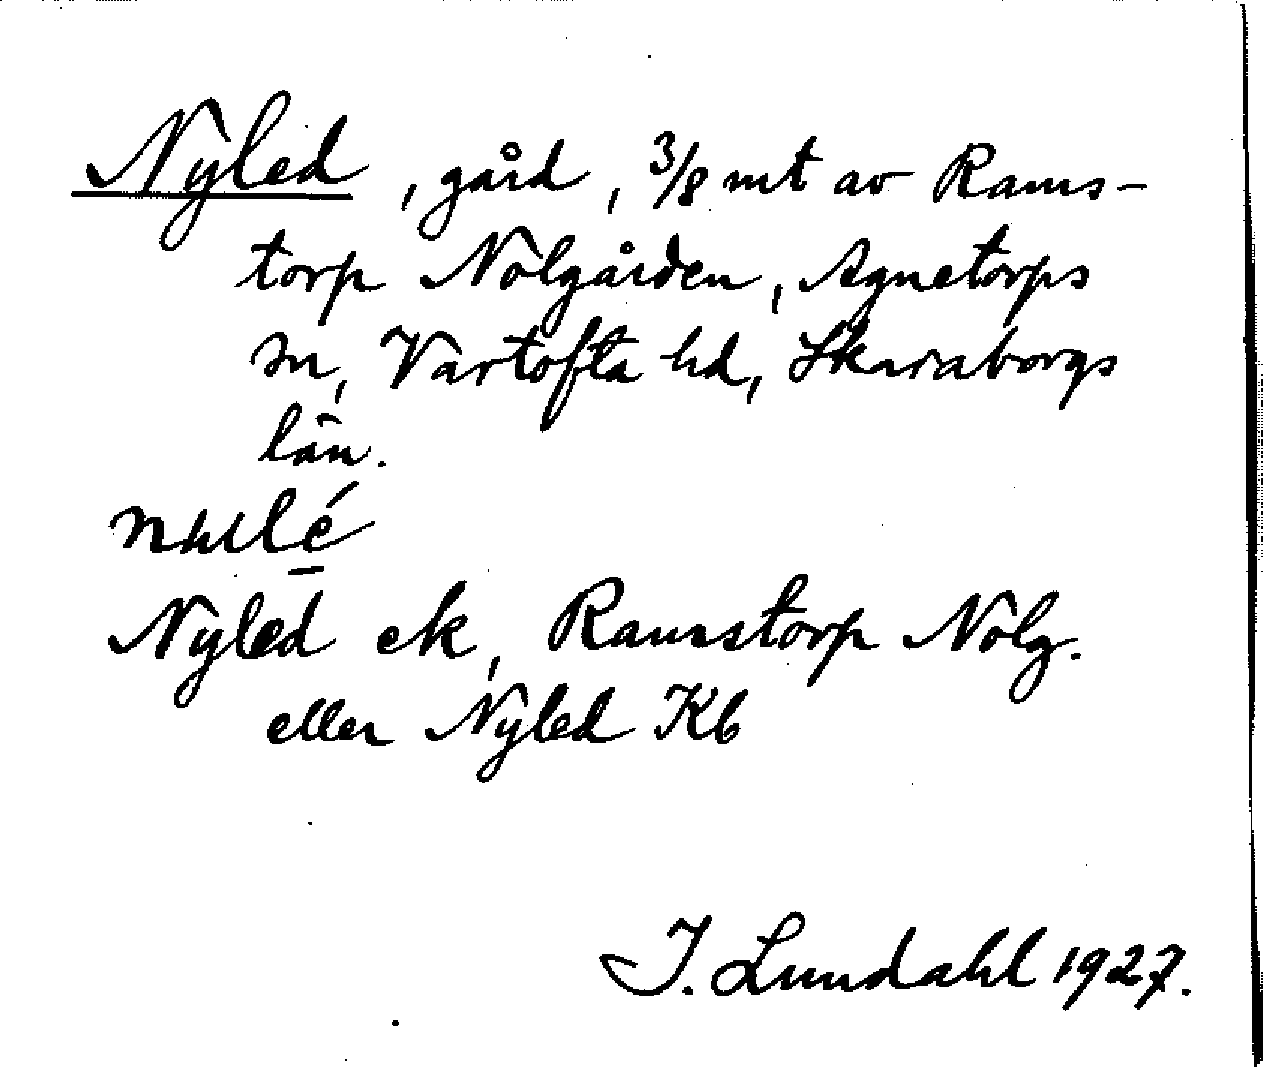 Nyled, gård, 3/8 mt av Rams-
torp Nolgården, Agnetorps
sn, Vartofta hd, Skaraborgs
län.
Nyled ek, Ramstorp Nolg.
eller Nyled Kb
I. Lundahl 1927.